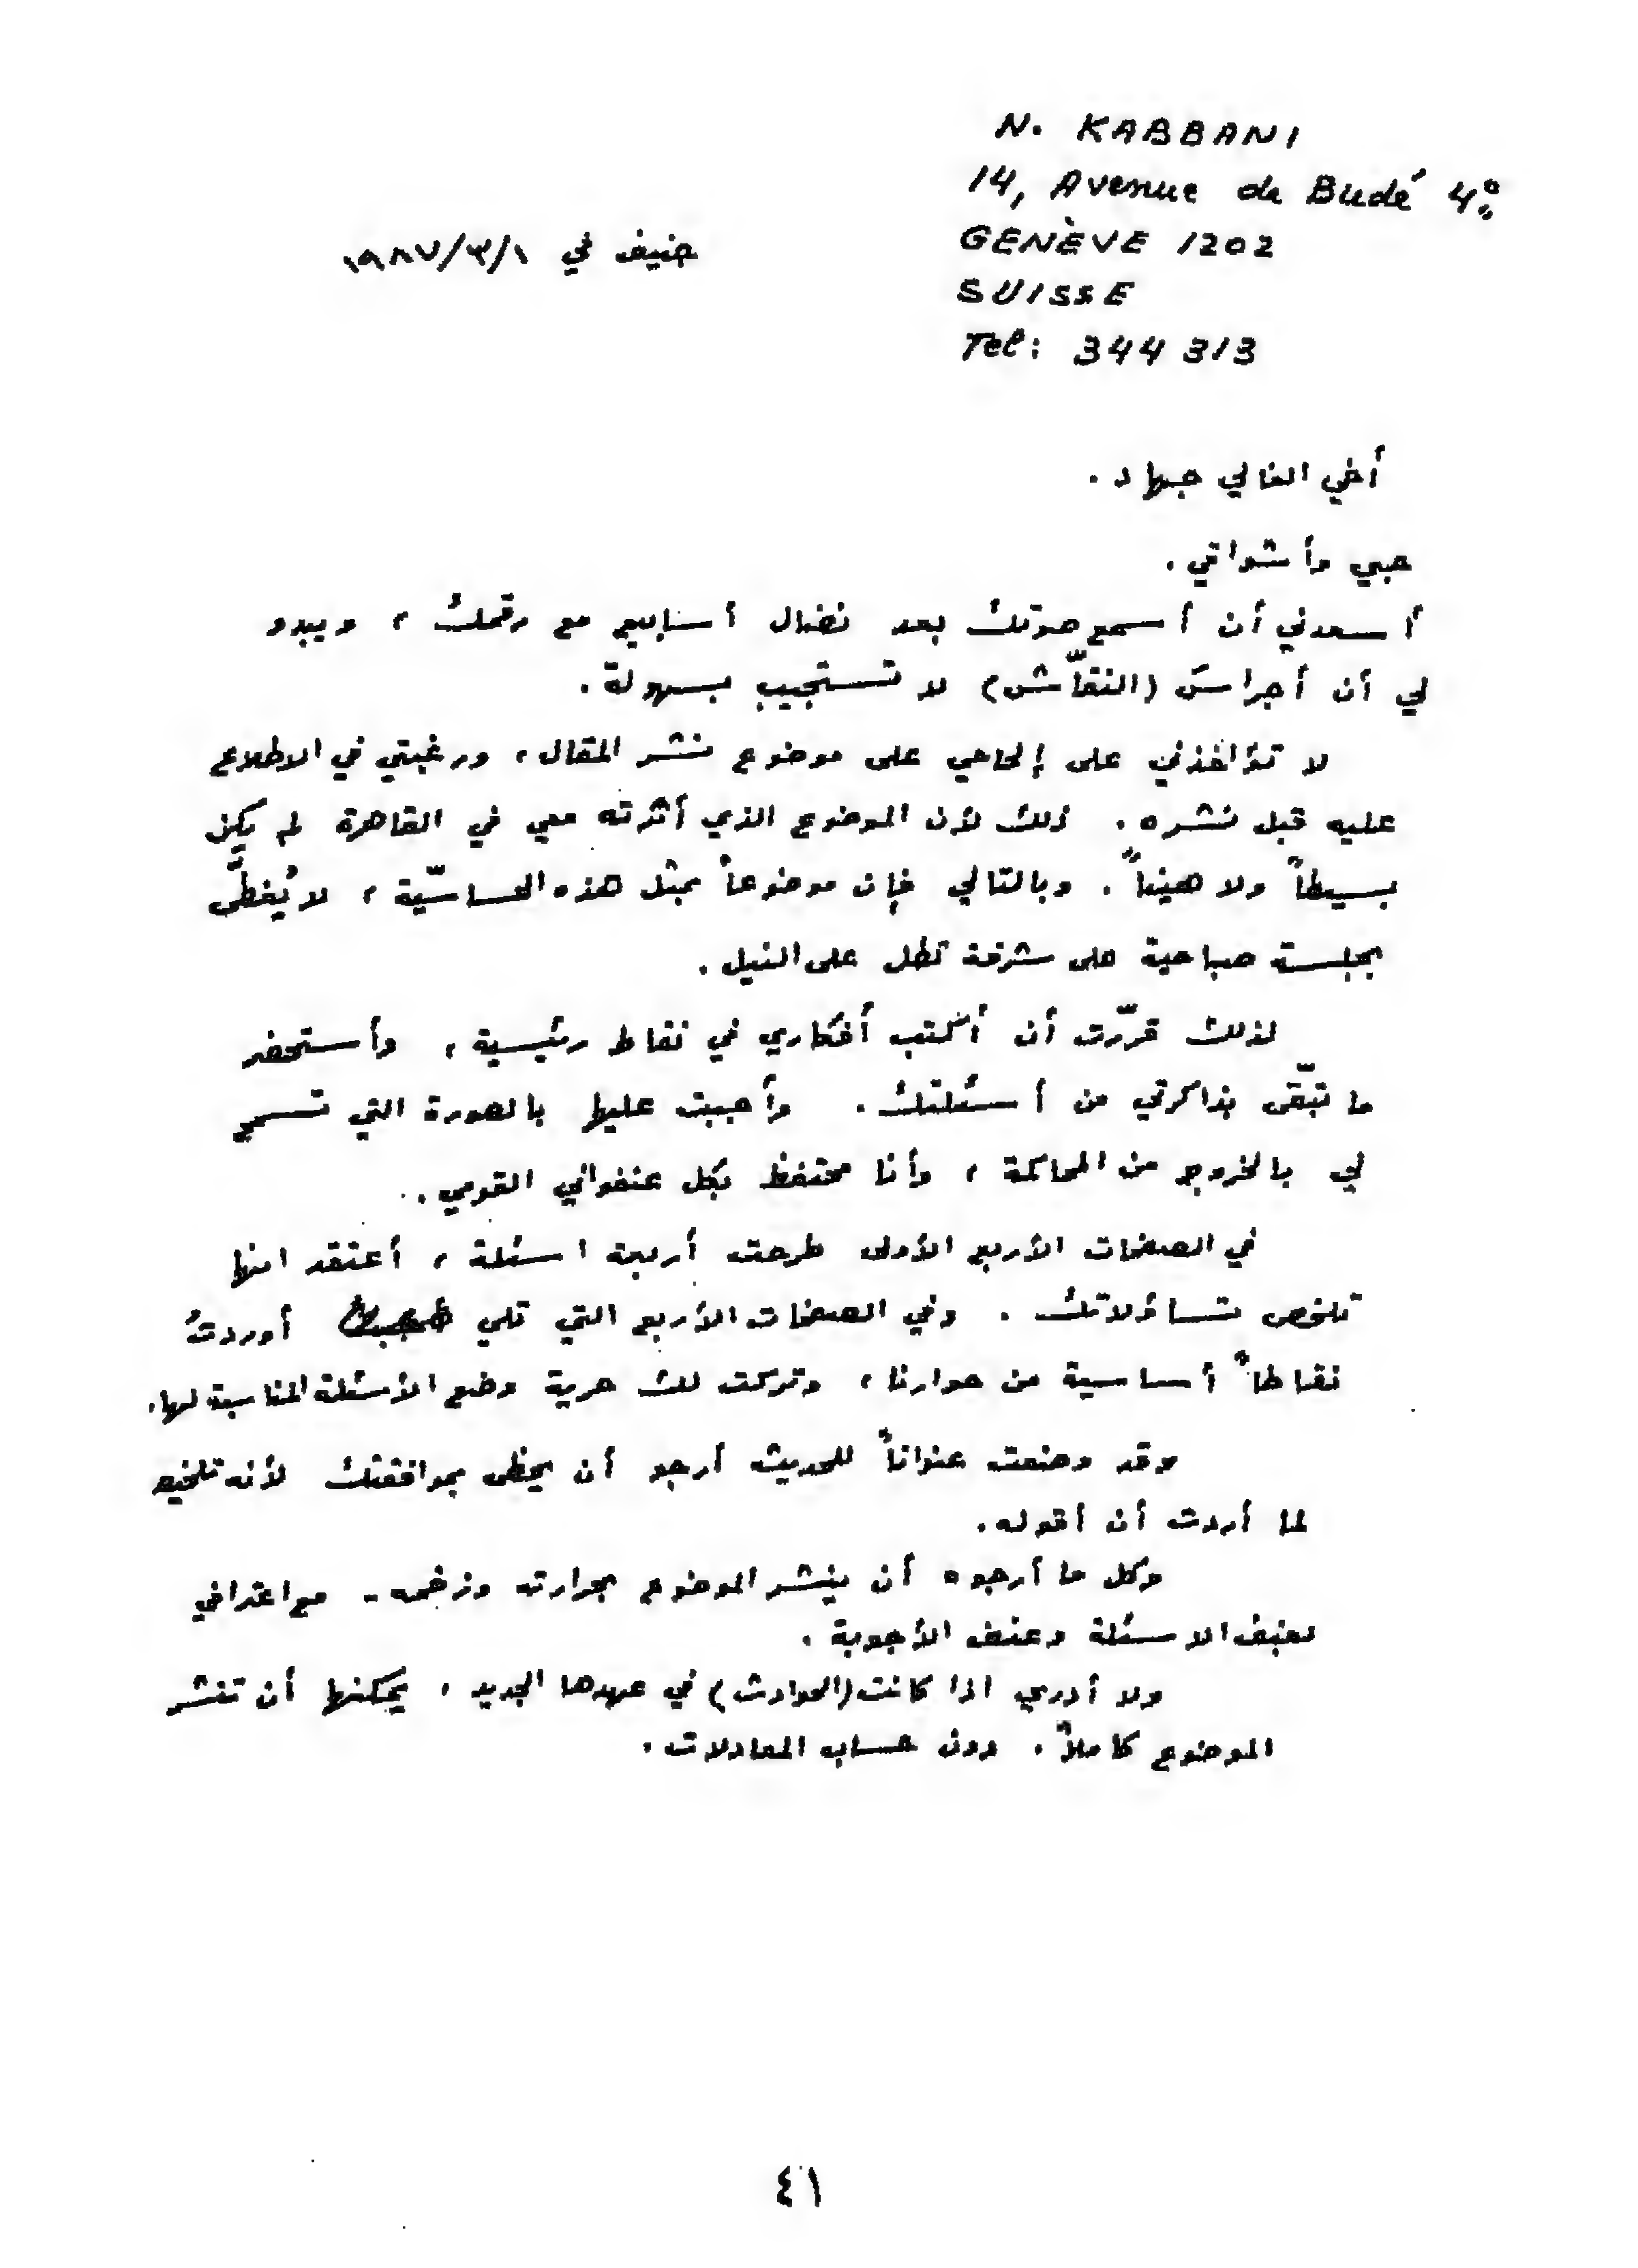 N. KABBANI
14, Avenue de Budé 4º
GENÈVE 1202
SUISSE
Tel: 344 313
جنيف في ١/٣/١٩٨٧
أخي الغالي جهاد.
حبي وأشواقي.
أسعدني أن أسمع صوتك بعد نضال أسابيع مع رقمك، ويبدو
لي أن أجراسَ (النقّاش) لا تستجيب بسهولة.
لا تؤاخذني على إلحاحي على موضوع نشر المقال، ورغبتي في الاطلاع
عليه قبل نشره. ذلك لأن الموضوع الذي أثرته معي في القاهرة لم يكن
بسيطاً ولا هيناً. وبالتالي فإن موضوعاً بمثل هذه الحساسيّة، لا يُغطَّى
بجلسة صباحية على شرفة تطل على النيل.
لذلك قرّرت أن أكتب أفكاري في نقاط رئيسية، وأستحضر
ما تبّقى بذاكرتي من أسئلتك. وأجبت عليها بالصورة التي تسمح
لي بالخروج من المحاكمة، وأنا محتفظ بكل عنفواني القومي..
في الصفحات الأربع الأولى طرحت أربعة اسئلة، أعتقد انها
تلخص تساؤلاتك. وفي الصفحات الأربع التي تلي أوردتُ
نقاطاً أساسية من حوارنا، وتركت لك حرية وضع الأسئلة المناسبة لها.
وقد وضعت عنواناً للحديث أرجو أن يحظى بموافقتك لأنه تلخيص
لما أردت أن أقوله.
وكل ما أرجوه أن ينشر الموضوع بحرارته وزخمه - مع اعترافي
بعنف الاسئلة وعنف الأجوبة.
ولا أدري اذا كانت (الحوادث) في عهدها الجديد، يمكنها أن تنشر
الموضوع كاملاً. دون حساب المعادلات.
٤١